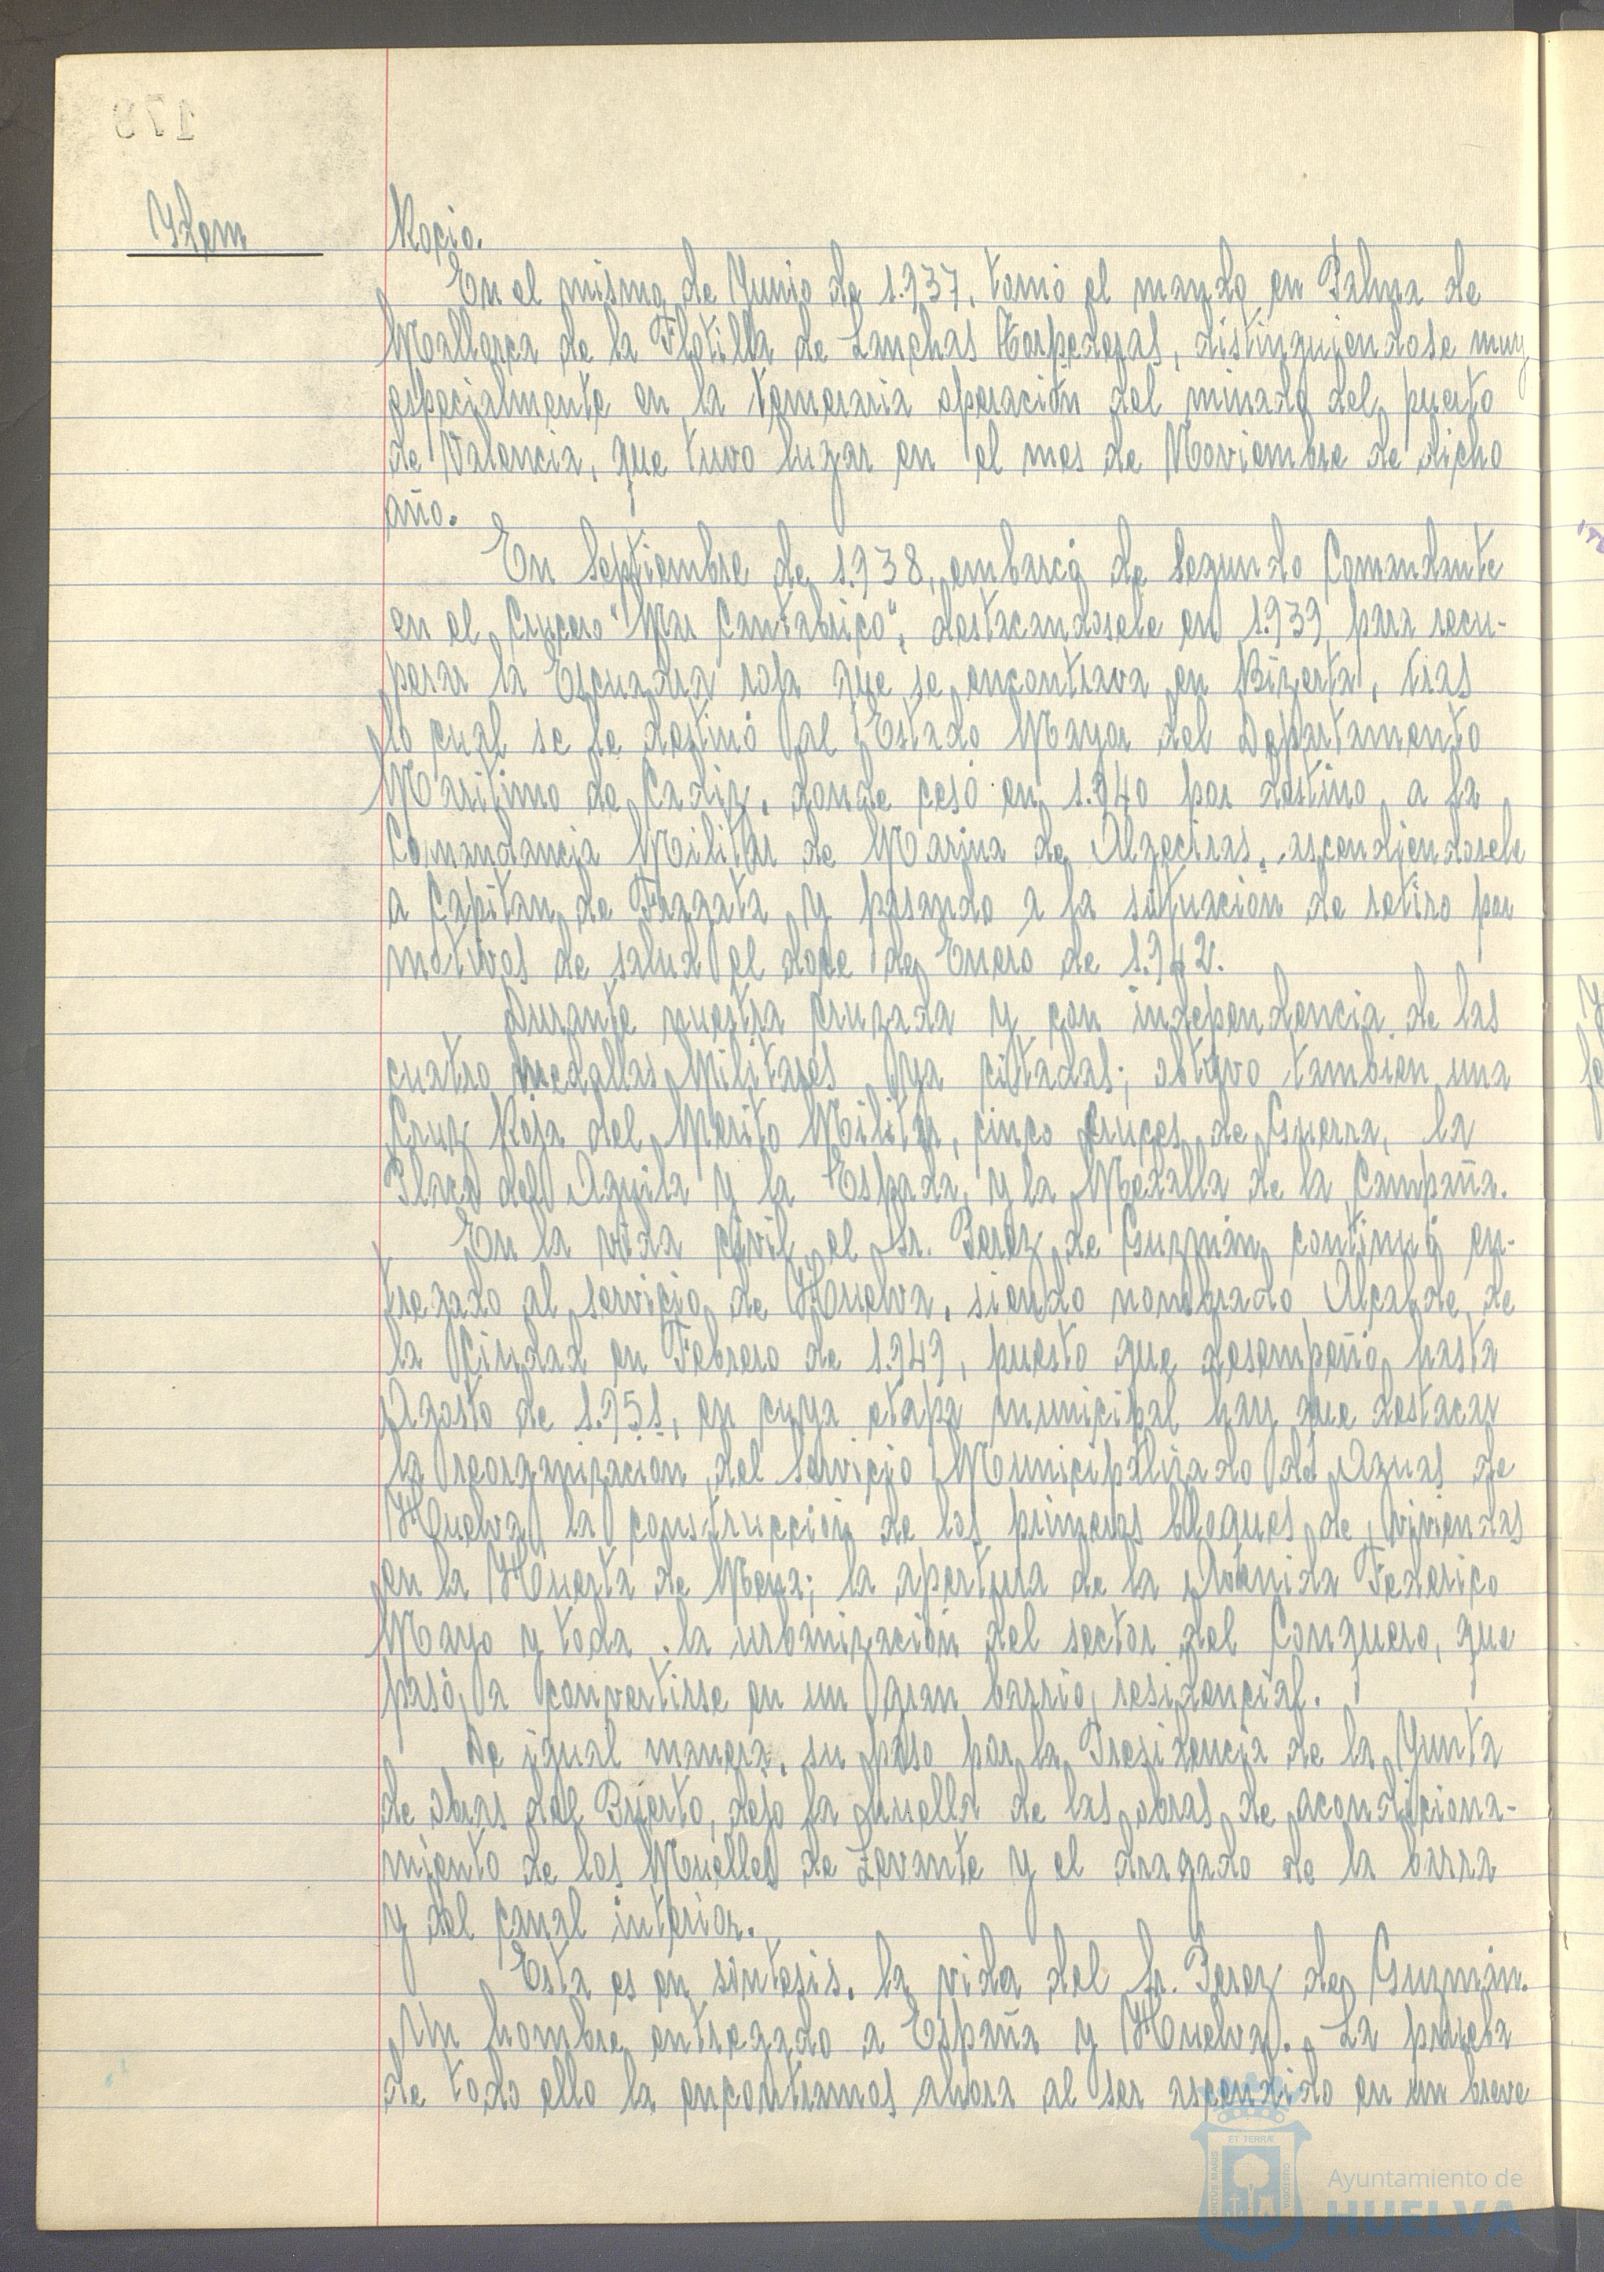 179
Ydem
Rocio.
En el mismo de Yunio de 1.937, tomó el mando en Palma de
Mallorca de la Flotilla de Lanchas Torpederas, distinguiendose muy
especialmente en la temeraria operación del minado del puerto
de Valencia, que tuvo lugar en el mes de Noviembre de dicho
año.
En Septiembre de 1.938, embarcó de Segundo Comandante
en el Crucero "Mar Cantabrico", destacandosele en 1.939 para recu-
perar la Escuadra roja que se encontrava en Bizerta, tras
lo cual se le destinó al Estado Mayor del Departamento
Maritimo de Cadiz, donde cesó en 1.940 por destino a la
Comandancia Militar de Marina de Algeciras, ascendiendosele
a Capitan de Fragata y pasando a la situación de retiro por
motivos de salud el doce de Enero de 1.942.
Durante nuestra Cruzada y con independencia de las
cuatro Medallas Militares ya citadas; obtuvo tambien una
Cruz Roja del Merito Militar, cinco Cruces de Guerra, la
Placa del Aguila y la Espada, y la Medalla de la Campaña.
En la vida civil el Sr. Perez de Guzmán continuó en-
tregado al servicio de Huelva, siendo nombrado Alcalde de
la Ciudad en Febrero de 1.949, puesto que desempeñó hasta
Agosto de 1.951, en cuya etapa municipal hay que destacar
la reorganización del Servicio Municipalizado de Aguas de
Huelva, la construcción de los primeros bloques de viviendas
en la Huerta de Mena; la apertura de la Avenida Federico
Mayo y toda la urbanización del sector del Conquero, que
pasó a convertirse en un gran barrio residencial.
De igual manera, su paso por la Presidencia de la Yunta
de obras del Puerto, dejo la huella de las obras de acondiciona-
miento de los Muelles de Levante y el dragado de la barra
y del canal interior.
Esta es en sintesis, la vida del Sr. Perez de Guzmán.
Un hombre entregado a España y Huelva. La prueba
de todo ello la encontramos ahora al ser ascendido en un breve
Ayuntamiento de
HUELVA